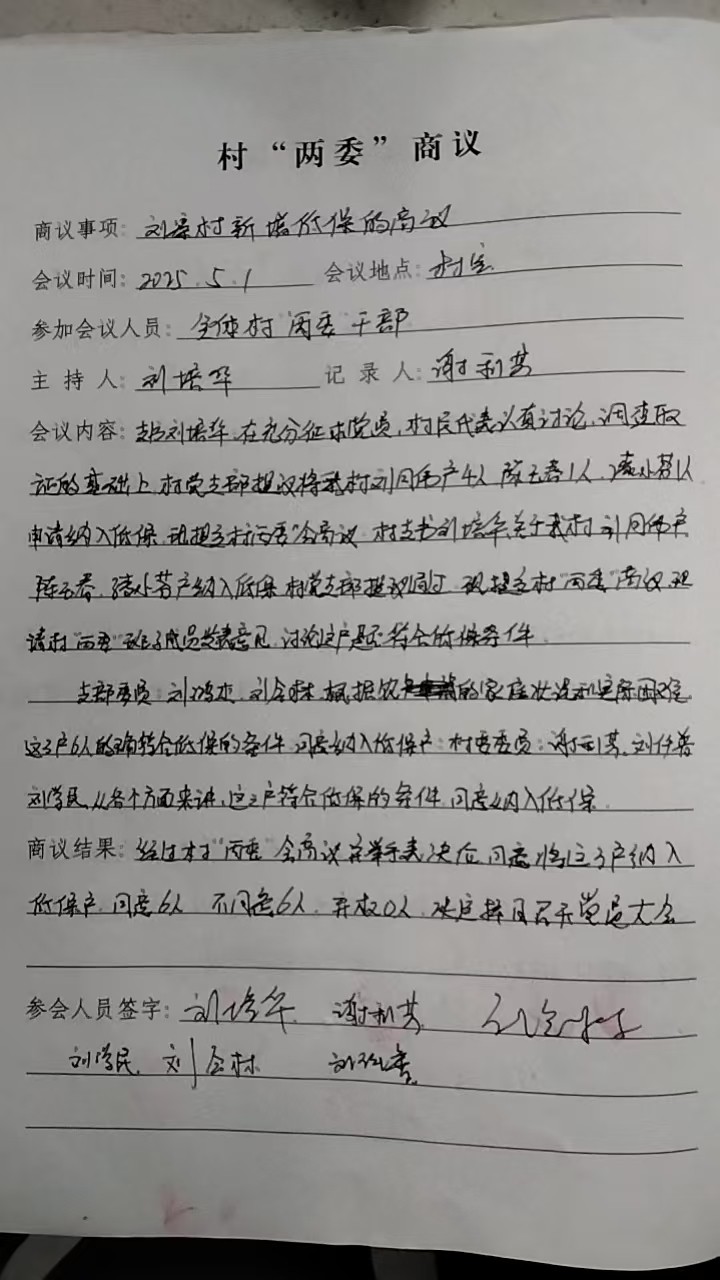 村“两委”商议
商议事项：刘 村新增低保的商议
会议时间：2025.5.1 会议地点：村室
参加会议人员：全体村“两委”干部
主持人：刘培华 记录人：谢利芳
会议内容：支书刘培华在充分征求党员，村民代表认真讨论，调查取
证的基础上，村党支部提议将我村刘同伟户4人 陈玉春1人，
申请纳入低保，现提交村“两委”会商议，村支书刘培华关于我村刘同伟户
陈玉春， 户纳入低保村党支部提议通过，现提交村“两委”商议现
请村“两委”班子成员发表意见，讨论这3户是否符合低保条件
支部委员：刘 刘全林 根据 的家庭状况和实际困难
这3户6人的确符合低保的条件，同意纳入低保户：村委委员：谢利芳，刘
刘学民，从各个方面来讲，这3户符合低保的条件，同意纳入低保
商议结果：经过村“两委”会商议并举手表决后，同意将这3户纳入
低保户，同意6人 不同意6人 弃权0人，决定择日召开党员大会
参会人员签字：刘培华 谢利芳
刘学民 刘全林